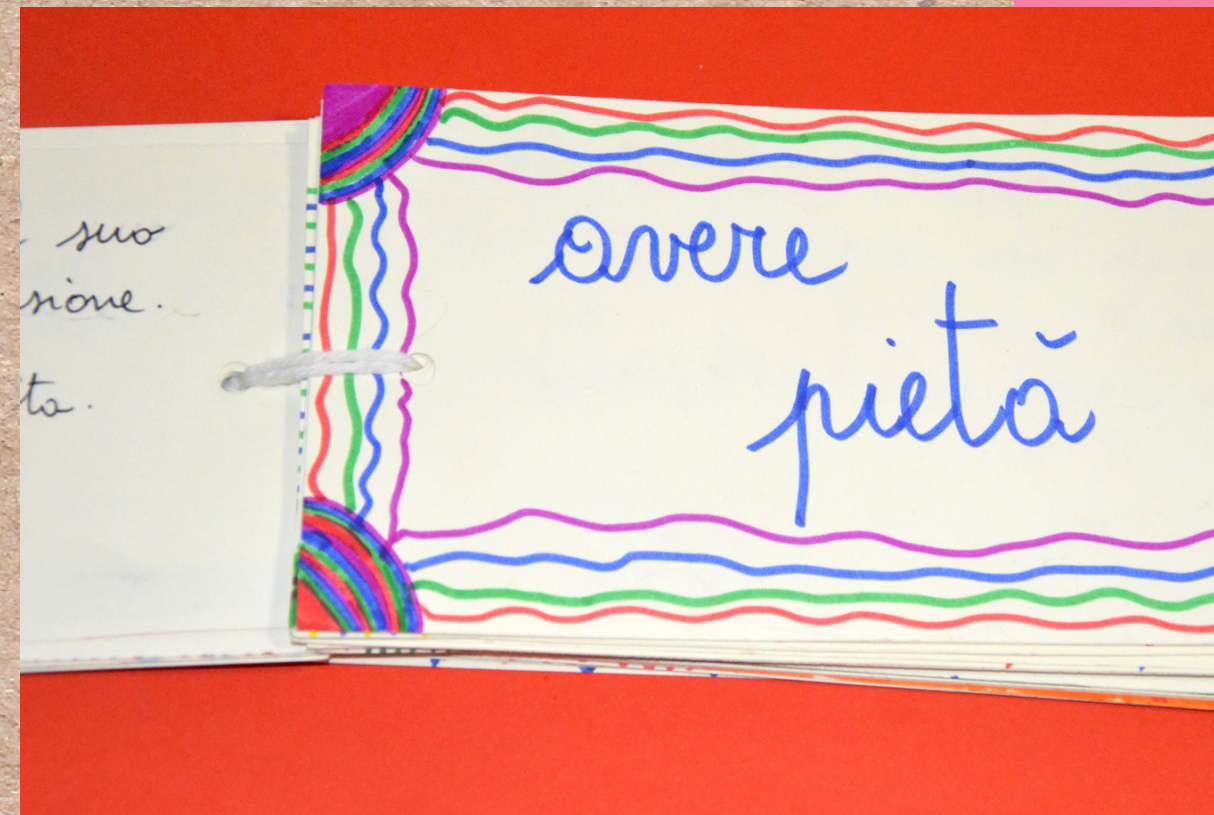 suo
sione.
ta.
avere
pietà